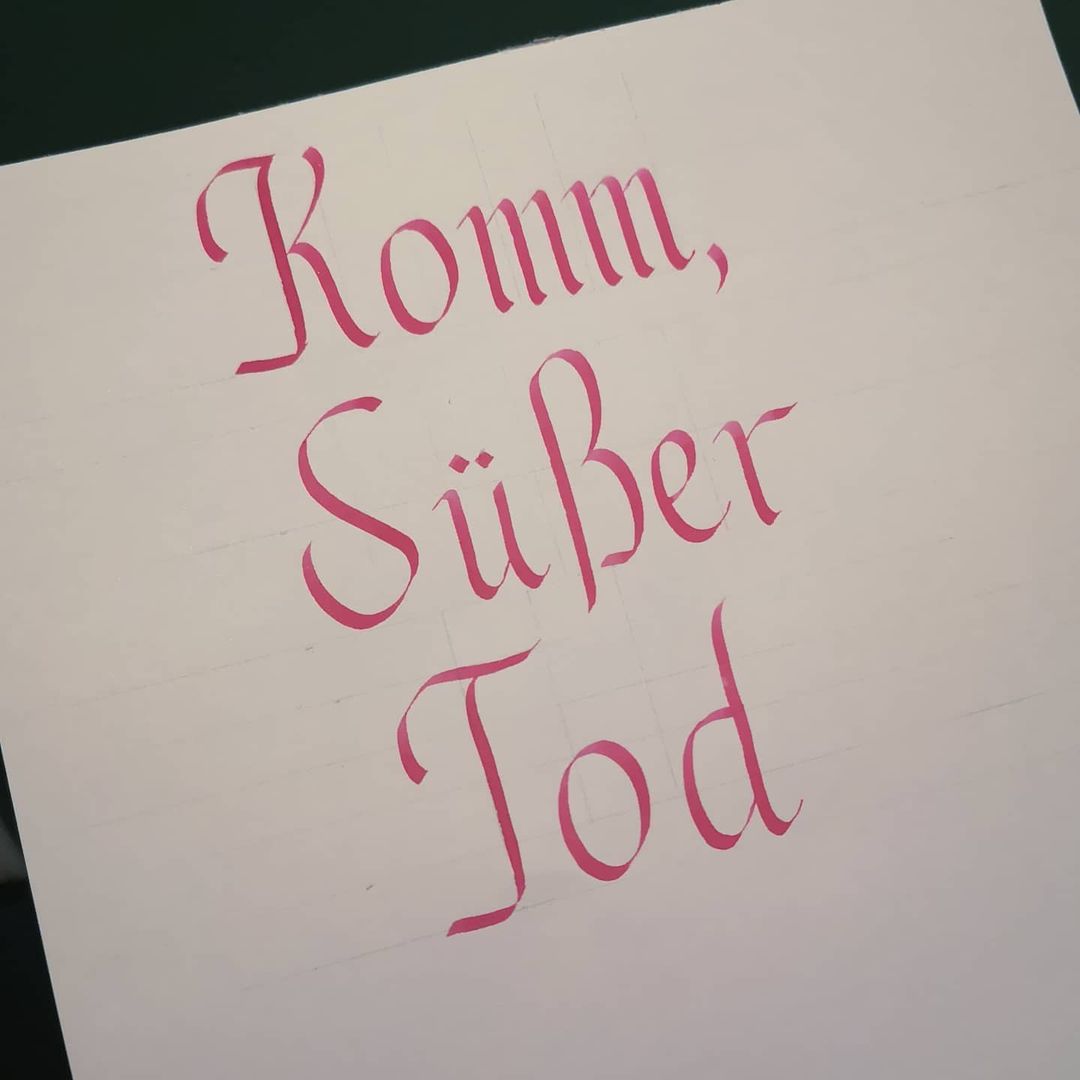 Komm,
Süßer
Tod